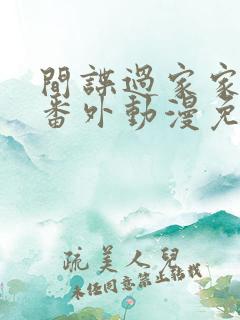 間諜過家家
番外動漫免
疏美人兒
未經同意禁止轉載